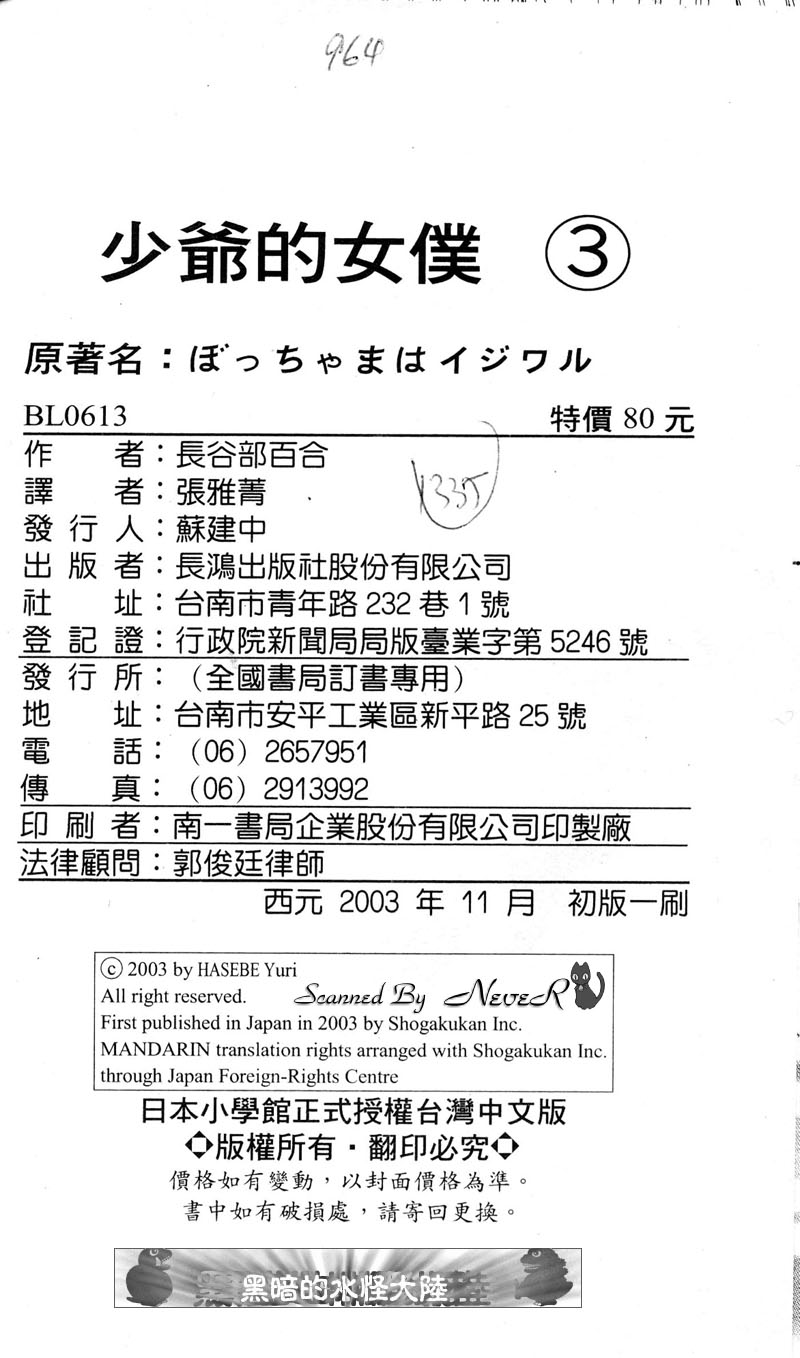 964
少爺的女僕 ③
原著名：ぼっちゃまはイジワル
BL0613 特價 80 元
作者：長谷部百合
335
譯者：張雅菁
發行人：蘇建中
出版者：長鴻出版社股份有限公司
社址：台南市青年路 232 巷 1 號
登記證：行政院新聞局局版臺業字第 5246 號
發行所：（全國書局訂書專用）
地址：台南市安平工業區新平路 25 號
電話：（06）2657951
傳真：（06）2913992
印刷者：南一書局企業股份有限公司印製廠
法律顧問：郭俊廷律師
西元 2003 年 11 月 初版一刷
ⓒ 2003 by HASEBE Yuri
All right reserved. Scanned By NeveR
First published in Japan in 2003 by Shogakukan Inc.
MANDARIN translation rights arranged with Shogakukan Inc.
through Japan Foreign-Rights Centre
日本小學館正式授權台灣中文版
◇版權所有・翻印必究◇
價格如有變動，以封面價格為準。
書中如有破損處，請寄回更換。
黑暗的水怪大陸